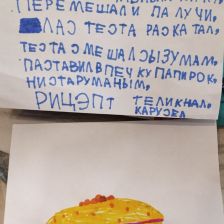 ПЕРЕМЕШАЛИ ПАЛУЧИ
ЛАС ТЕСТА РАСКАТАЛ,
ТЕСТА СМЕШАЛ СЫЗУМАМ,
ПАСТАВИЛ В ПЕЧКУ ПАПИРОК,
НИСТАРУМАНЫМ,
РИЦЭПТ ТЕЛИКНАЛ.
КАРУСЕВ